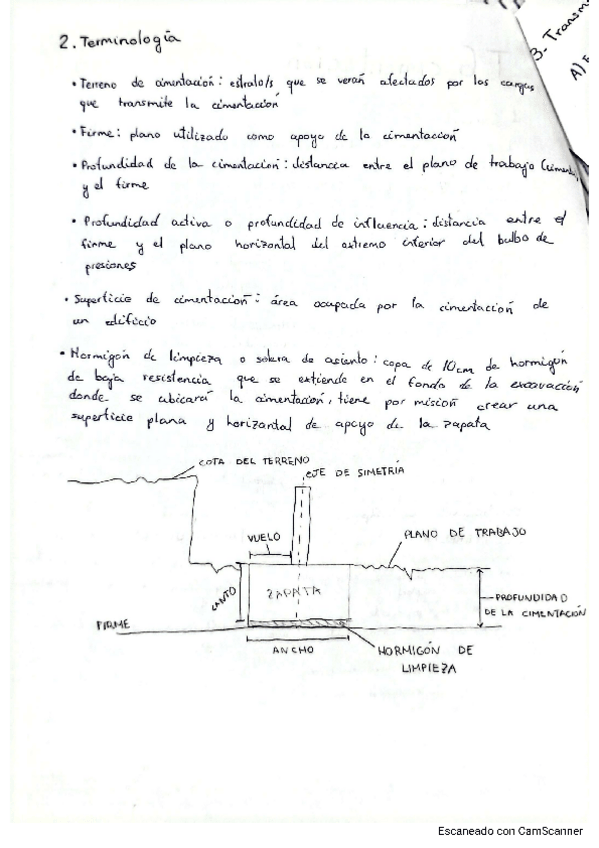 2. Terminología
3- Transm
A) E
• Terreno de cimentación: estrato/s que se verán afectados por las cargas
que transmite la cimentación
• Firme: plano utilizado como apoyo de la cimentación
• Profundidad de la cimentación: distancia entre el plano de trabajo (ciment.
y el firme
• Profundidad activa o profundidad de influencia: distancia entre el
firme y el plano horizontal del extremo inferior del bulbo de
presiones
• Superficie de cimentación: área ocupada por la cimentación de
un edificio
• Hormigón de limpieza o solera de asiento: capa de 10cm de hormigón
de baja resistencia que se extiende en el fondo de la excavación
donde se ubicará la cimentación, tiene por misión crear una
superficie plana y horizontal de apoyo de la zapata
COTA DEL TERRENO
EJE DE SIMETRÍA
VUELO
PLANO DE TRABAJO
CANTO
ZAPATA
PROFUNDIDAD
DE LA CIMENTACIÓN
FIRME
ANCHO
HORMIGÓN DE
LIMPIEZA
Escaneado con CamScanner